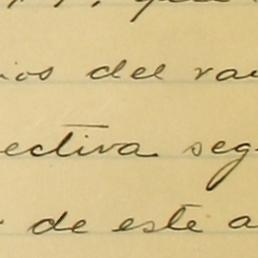 ios del ra
ectiva seg
de este a